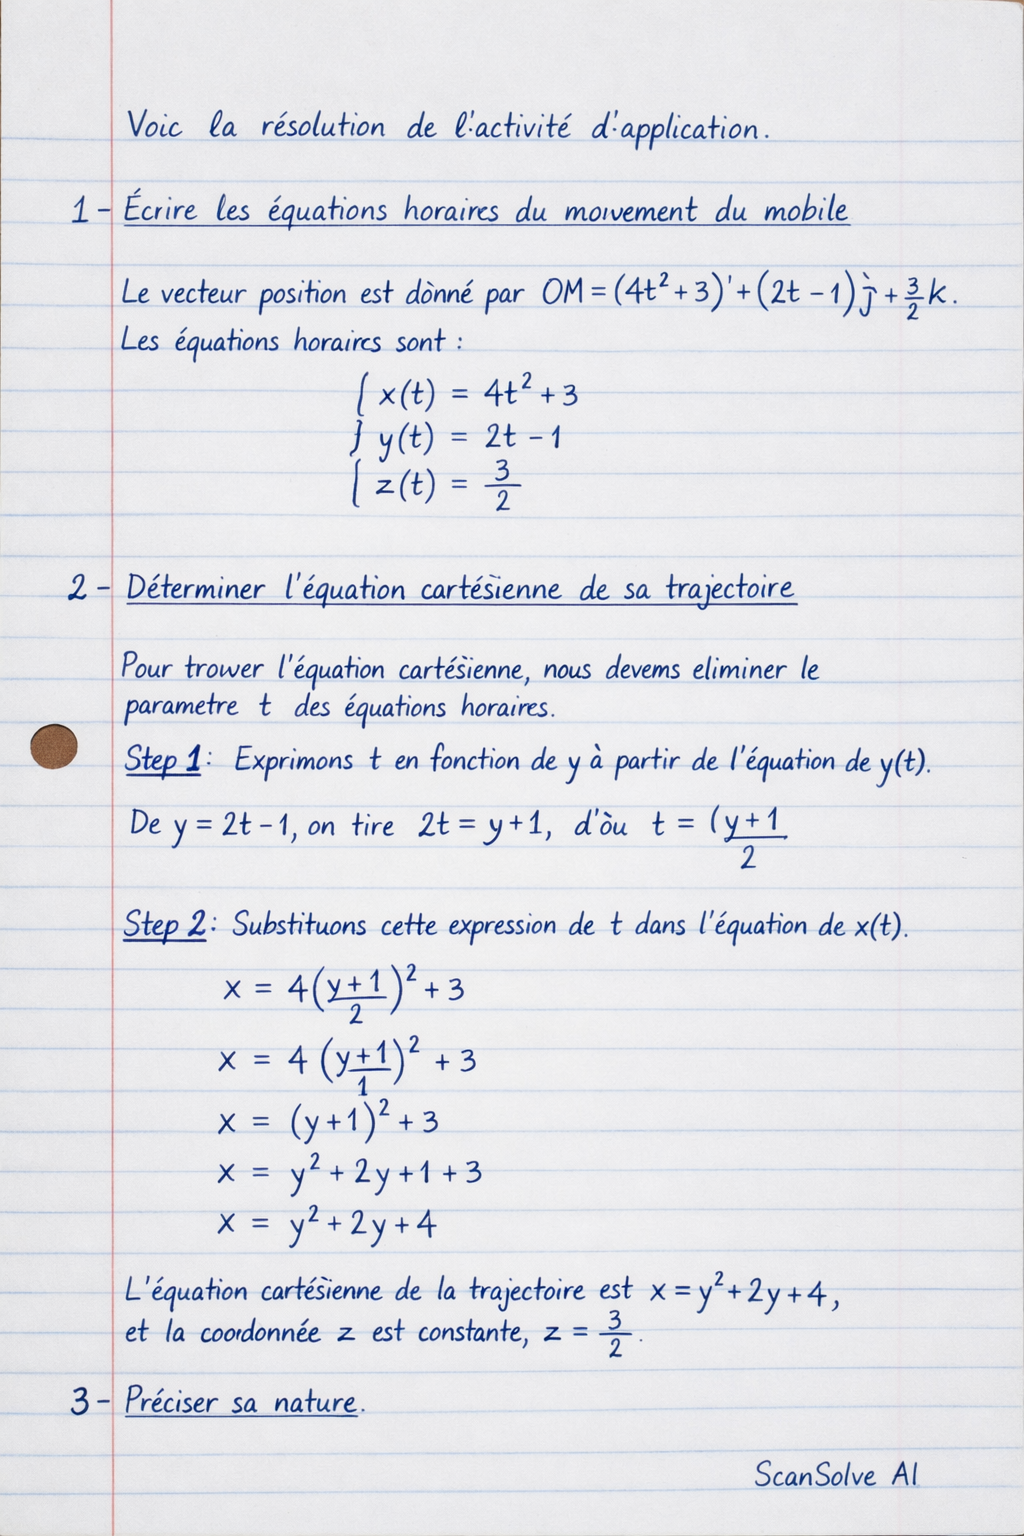 Voic la résolution de l'activité d'application.
1 - Écrire les équations horaires du mouvement du mobile
Le vecteur position est dònné par OM = (4t² + 3)' + (2t - 1) j + 3/2 k.
Les équations horaires sont :
{ x(t) = 4t² + 3
} y(t) = 2t - 1
{ z(t) = 3/2
2 - Déterminer l'équation cartésienne de sa trajectoire
Pour trower l'équation cartésienne, nous devems eliminer le
parametre t des équations horaires.
Step 1: Exprimons t en fonction de y à partir de l'équation de y(t).
De y = 2t - 1, on tire 2t = y + 1, d'òu t = (y + 1/2
Step 2: Substituons cette expression de t dans l'équation de x(t).
x = 4(y + 1/2)² + 3
x = 4 (y + 1/1)² + 3
x = (y + 1)² + 3
x = y² + 2y + 1 + 3
x = y² + 2y + 4
L'équation cartésienne de la trajectoire est x = y² + 2y + 4,
et la coordonnée z est constante, z = 3/2.
3 - Préciser sa nature.
ScanSolve AI